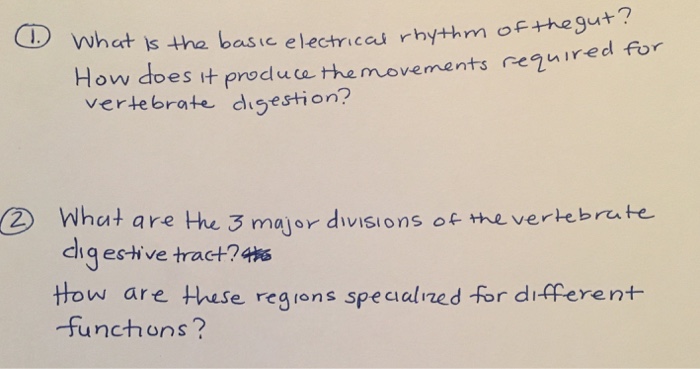 1. What is the basic electrical rhythm of the gut?
How does it produce the movements required for
vertebrate digestion?
2 What are the 3 major divisions of the vertebrate
digestive tract?
How are these regions specialized for different
functions?